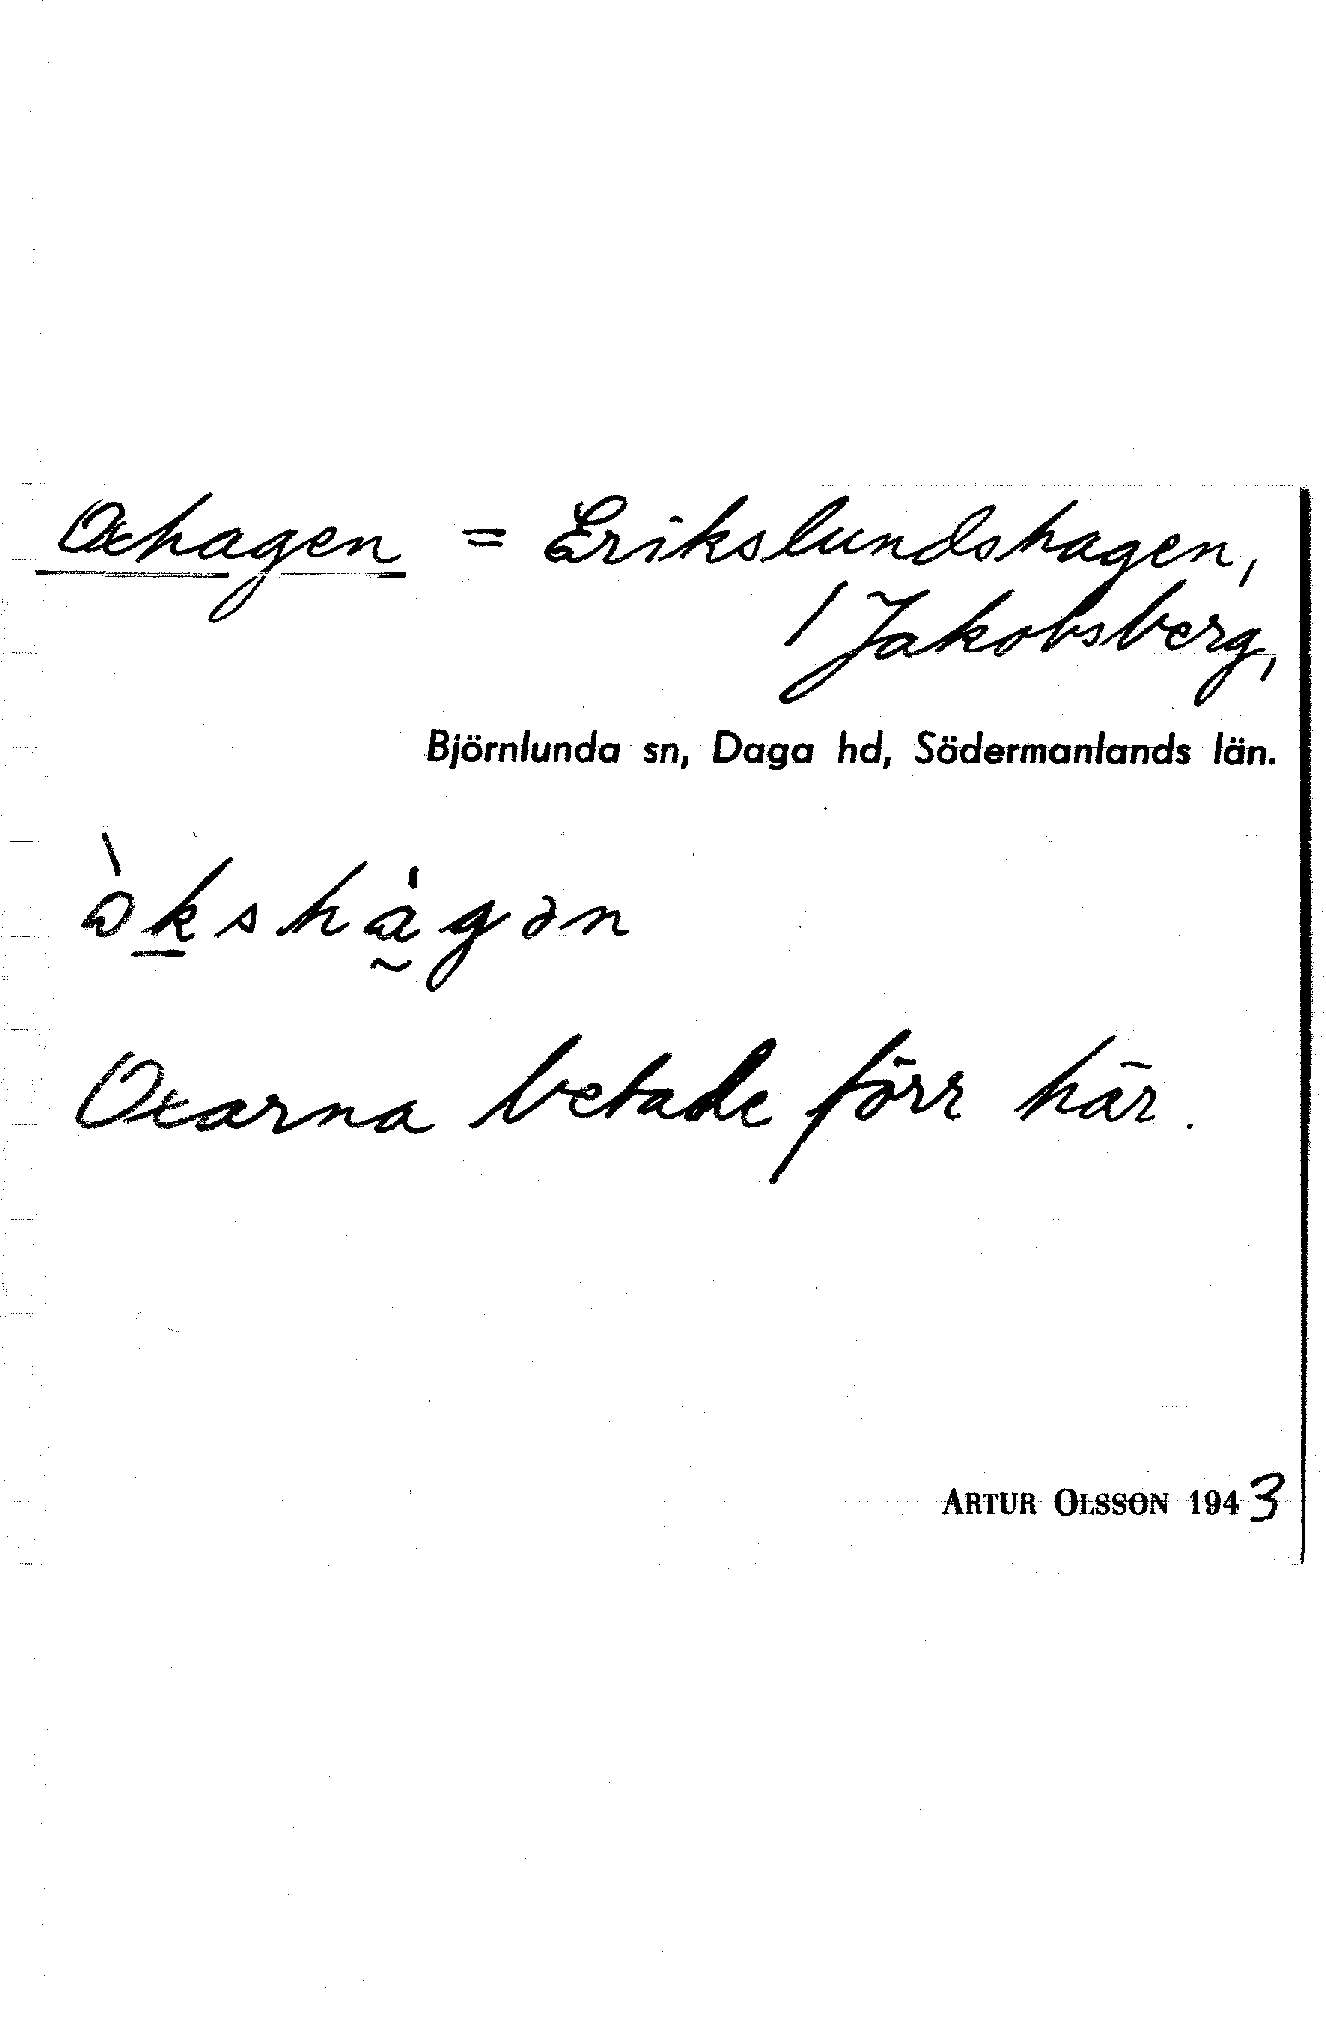 Oxhagen = Erikslundshagen,
/ Jakobsberg,
Björnlunda sn, Daga hd, Södermanlands län.
Oxarna betade förr här.
ARTUR OLSSON 1943